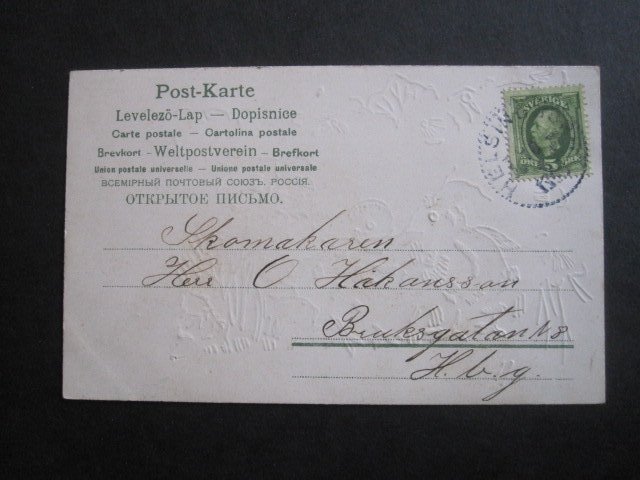 Post-Karte
Levelező-Lap — Dopisnice
Carte postale — Cartolina postale
Brevkort - Weltpostverein - Brefkort
Union postale universelle — Unione postale universale
ВСЕМІРНЫЙ ПОЧТОВЫЙ СОЮЗЪ. РОССІЯ.
ОТКРЫТОЕ ПИСЬМО.
SVERIGE
5
ÖRE ÖRE
HELSIN
Skomakaren
Herr O Håkansson
Bruksgatan 18
H.b.g.